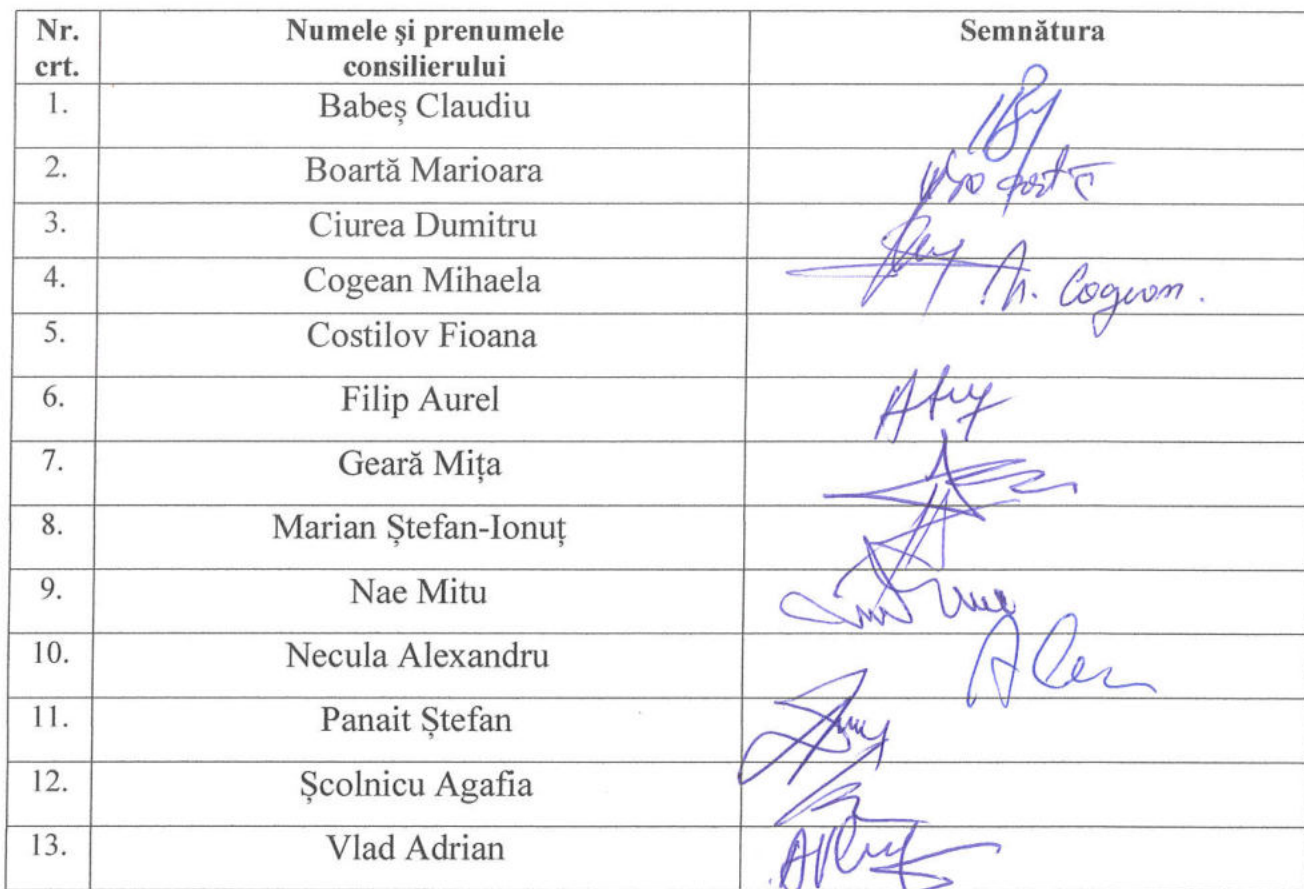 Nr. crt. Numele şi prenumele consilierului Semnătura
1. Babeș Claudiu
2. Boartă Marioara
3. Ciurea Dumitru
4. Cogean Mihaela
M. Cogean.
5. Costilov Fioana
6. Filip Aurel
7. Geară Mița
8. Marian Ștefan-Ionuț
9. Nae Mitu
10. Necula Alexandru
11. Panait Ștefan
12. Școlnicu Agafia
13. Vlad Adrian